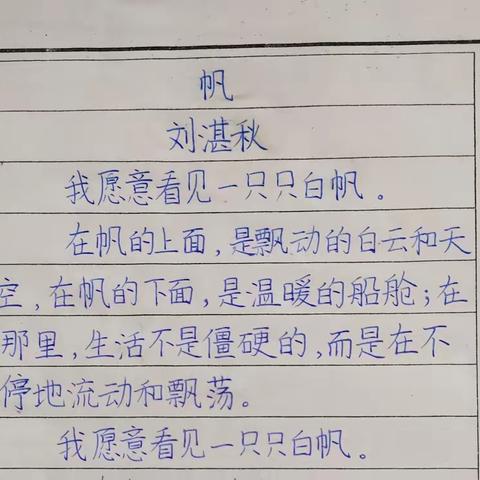 帆
刘湛秋
我愿意看见一只只白帆。
在帆的上面,是飘动的白云和天
空,在帆的下面,是温暖的船舱;在
那里,生活不是僵硬的,而是在不
停地流动和飘荡。
我愿意看见一只只白帆。